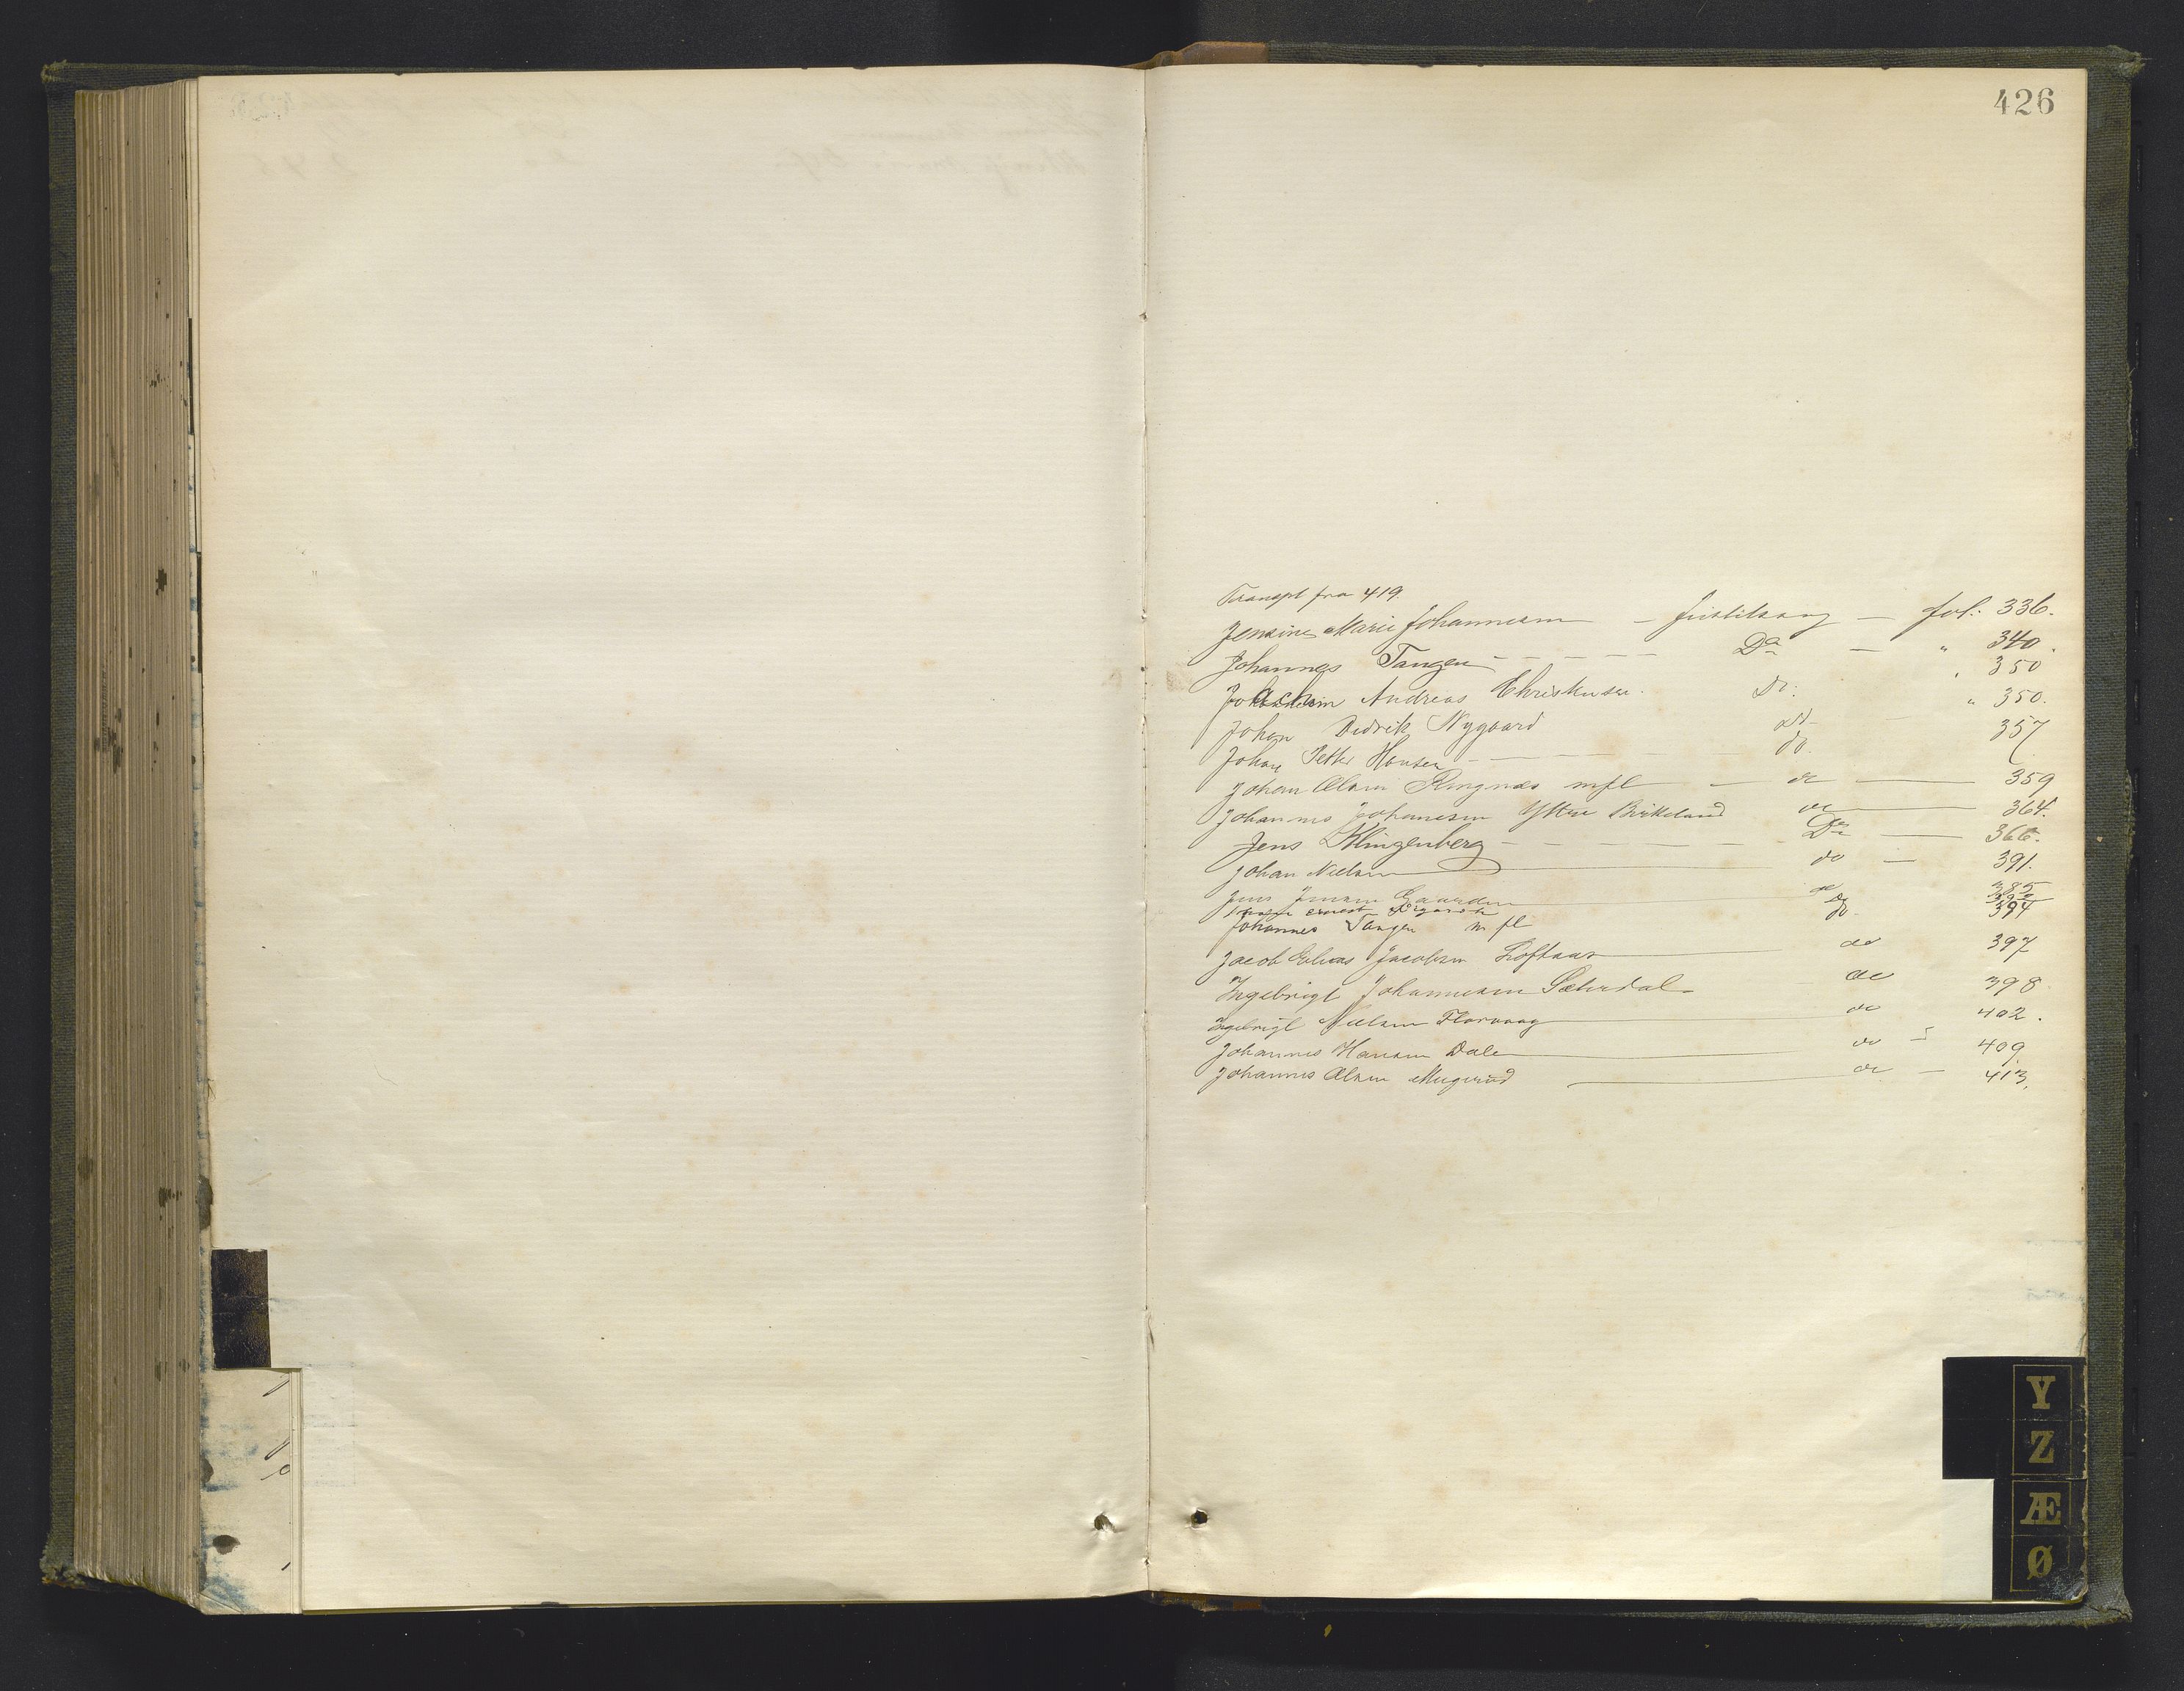 426
Transpt fra 419.
Jensine Marie Johannesen – Justitssag – fol: 336.
Johannes Tangen – – – – – Do – " 340.
Joachim Andreas Christensen. Do. " 350
Johan Didrik Nygaard do " 350.
Johan Petter Hansen – – – – do. 357
Johan Olsen Ringnæs mfl – do – 359
Johannes Johannesen Yttre Birkeland do – 364.
Jens Klingenberg – – – – – Do – 366.
Johan Nielsen – do – 391.
Jens Jensen Gaarden do 385
Ernest do
Johannes Tangen m fl do. 394
Jacob Elias Jacobsen Loftaas do 397
Ingebrigt Johannesen Sæterdal do 398
Ingebrigt Nielsen Florvaag do 402.
Johannes Hansen Dale do – 409.
Johannes Olsen do – 413.
Y
Z
Æ
Ø